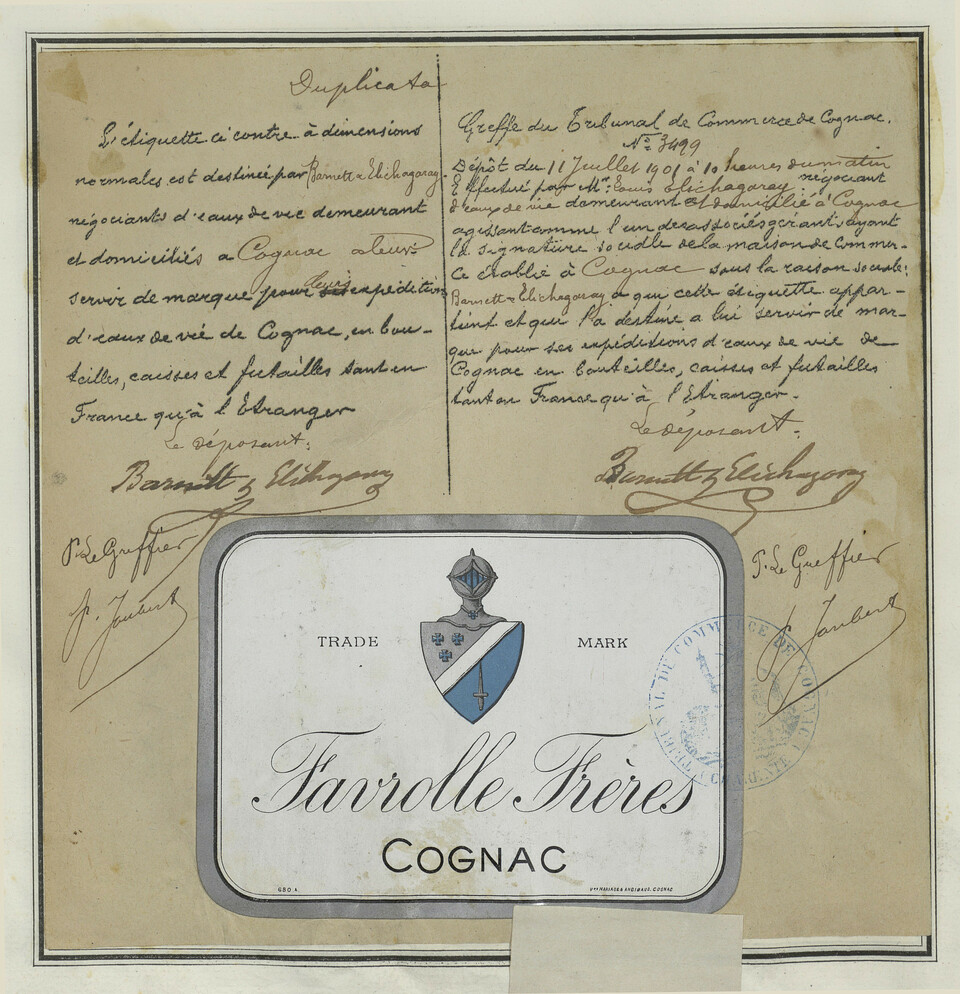 Duplicata
L'étiquette ci contre à dimensions
normales est destinée par Barnett & Elichagaray
négociants d'eaux de vie demeurant
et domiciliés a Cognac a leur
servir de marque pour leurs expéditions
d'eaux de vie de Cognac, en bou-
teilles, caisses et futailles tant en
France qu'à l'Etranger
Le déposant:
Barnett & Elichagaray
P. Le Greffier
P. Joubert
Greffe du Tribunal de Commerce de Cognac.
No. 3499
Dépôt du 11 Juillet 1901 à 10 heures du matin
Effectué par Mr. Louis Elichagaray négociant
d'eaux de vie demeurant et domicilié à Cognac
agissant comme l'un des associés gérants ayant
la signature sociale de la maison de Commer-
ce établie à Cognac sous la raison sociale:
Barnett & Elichagaray a qui cette étiquette appar-
tient et qui l'a destiné a lui servir de mar-
que pour ses expéditions d'eaux de vie de
Cognac en bouteilles, caisses et futailles
tant en France qu'à l'Etranger.
Le déposant:
Barnett & Elichagaray
P. Le Greffier
P. Joubert
TRADE MARK
Favrolle Frères
COGNAC
680 A
TRIBUNAL DU COMMERCE DE COGNAC
CHARENTE